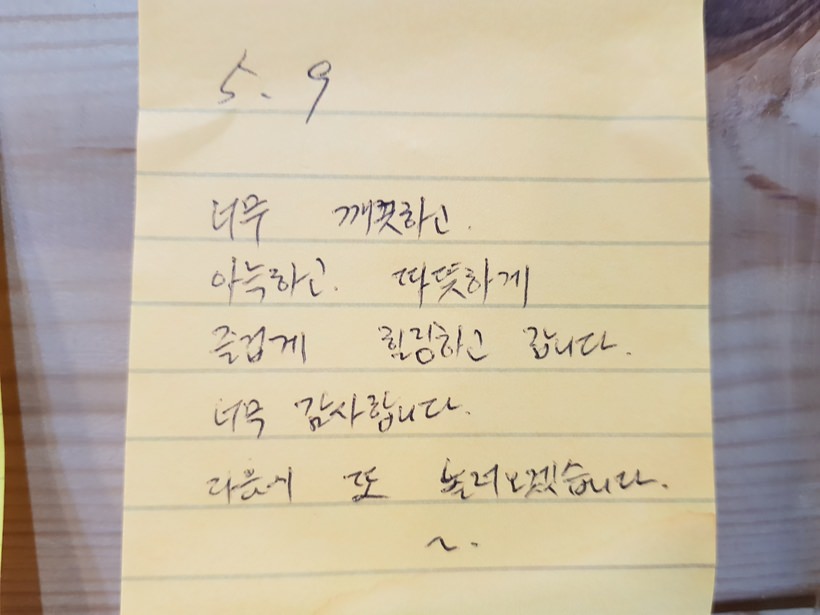 5. 9
너무 깨끗하고.
아늑하고. 따뜻하게
즐겁게 힐링하고 갑니다.
너무 감사합니다.
다음에 또 놀러오겠습니다.
~.